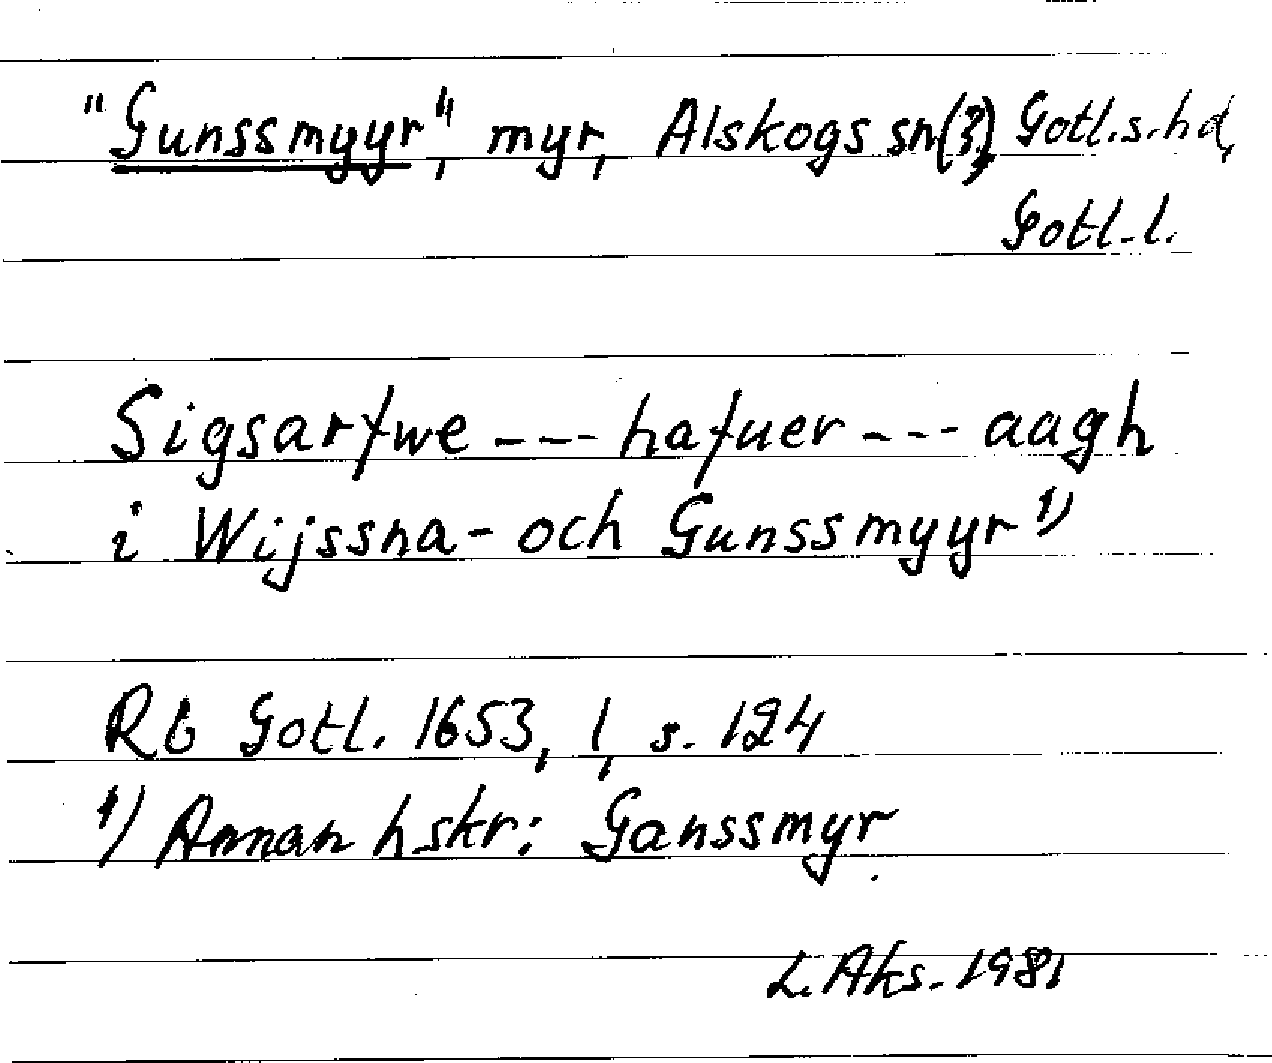 "Gunssmyyr", myr, Alskogs sn(?), Gotl.s.hd,
Gotl.l.
Sigsarfwe --- hafuer --- aagh
i Wijssna- och Gunssmyyr 1)
Rb Gotl. 1653, 1, s. 124
1) Annan hskr: Ganssmyr.
L. Aks. 1981